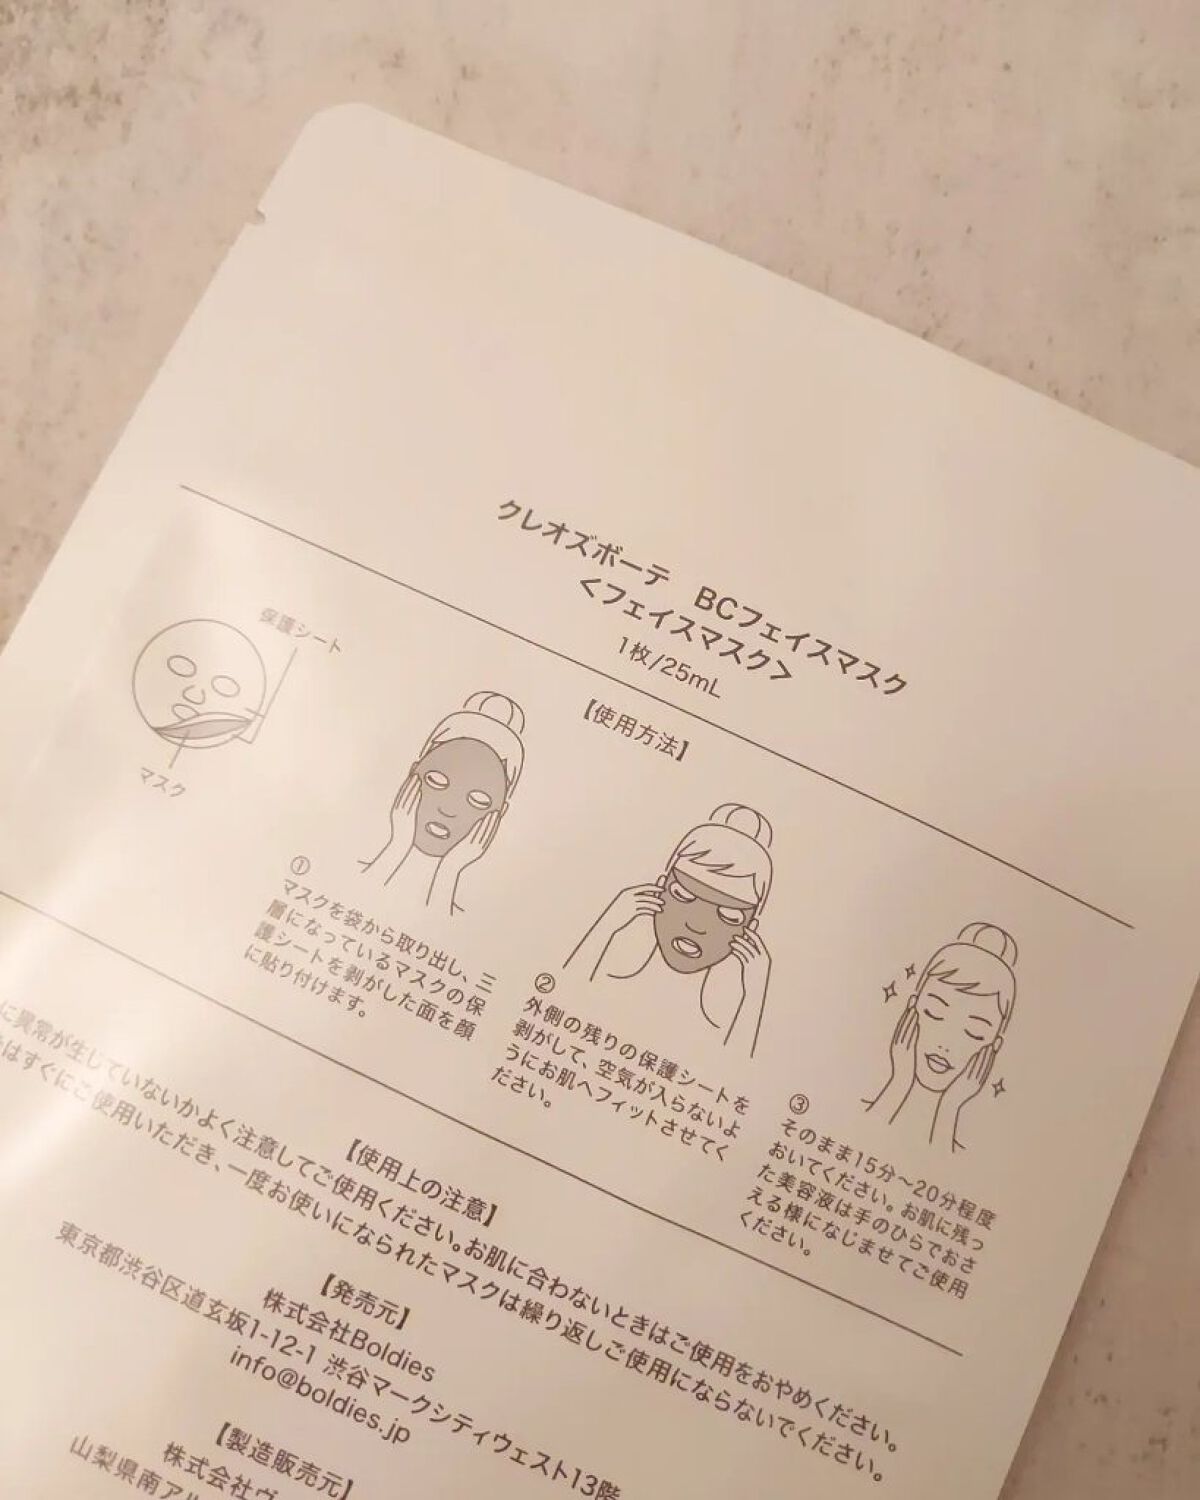 クレオズボーテ　BCフェイスマスク
<フェイスマスク>
1枚/25mL
【使用方法】
保護シート
マスク
①
マスクを袋から取り出し、三
層になっているマスクの保
護シートを剥がした面を顔
に貼り付けます。
②
外側の残りの保護シートを
剥がして、空気が入らないよ
うにお肌へフィットさせてく
ださい。
③
そのまま15分～20分程度
おいてください。お肌に残っ
た美容液は手のひらでおさ
える様になじませてご使用
ください。
【使用上の注意】
に異常が生じていないかよく注意してご使用ください。お肌に合わないときはご使用をおやめください。
はすぐにご使用いただき、一度お使いになられたマスクは繰り返しご使用にならないでください。
【発売元】
株式会社Boldies
東京都渋谷区道玄坂1-12-1 渋谷マークシティウェスト13階
info@boldies.jp
【製造販売元】
株式会社ヴ
山梨県南アル